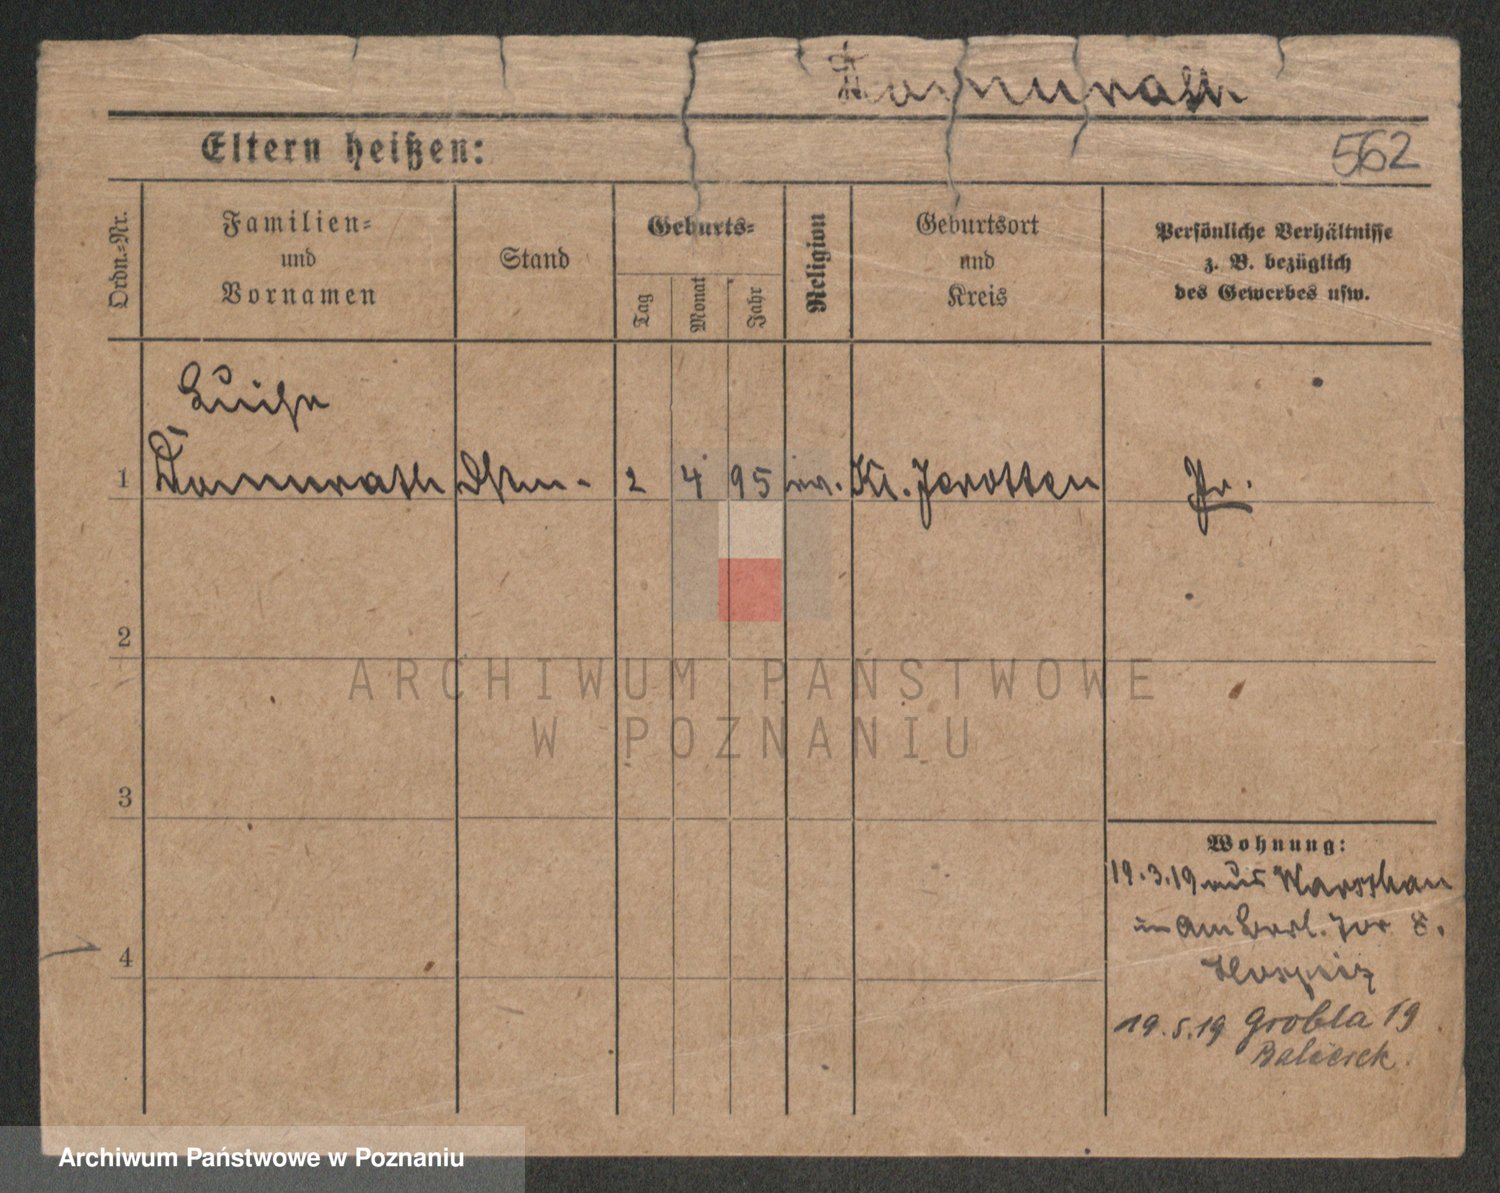 Damnrath
Eltern heißen:
562
Ordn.-Nr.
Familien-
und
Vornamen
Stand
Geburts-
Tag
Monat
Jahr
Religion
Geburtsort
und
Kreis
Persönliche Verhältnisse
z. B. bezüglich
des Gewerbes usw.
Luise
1 Damnrath 2 4 95 ev. Kl. Jerotten Pr.
2
ARCHIWUM PAŃSTWOWE
W POZNANIU
3
Wohnung:
19.3.19 aus Warschau
Am Berl. Tor 8.
4
Hospiz
19.5.19 Grobla 19
Archiwum Państwowe w Poznaniu